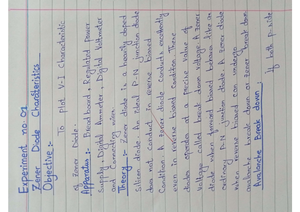 Experiment no. 01
Zener Diode Charatteristics
Objective :-
To plot V-I Characteristic
of Zener Diode.
Apparatus :- Bread board, Regulated Power
Supply, Digital Ammeter, Digital Voltmeter
and Connecting wires
Theory :- Zener diode is a heavily doped
silicon diode. An ideal P-N junction diode
does not conduct in reverse biased
Condition. A zener diode conducts excellently
even in reverse biased condition. These
diodes operates at a precise value of
voltage called break down voltage. A zener
diode when forward biased behaves like an
ordinary P-N junction diode. A zener diode
when reverse biased can undergo
avalanche break down or zener break down
Avalanche Break down :
If both p-side